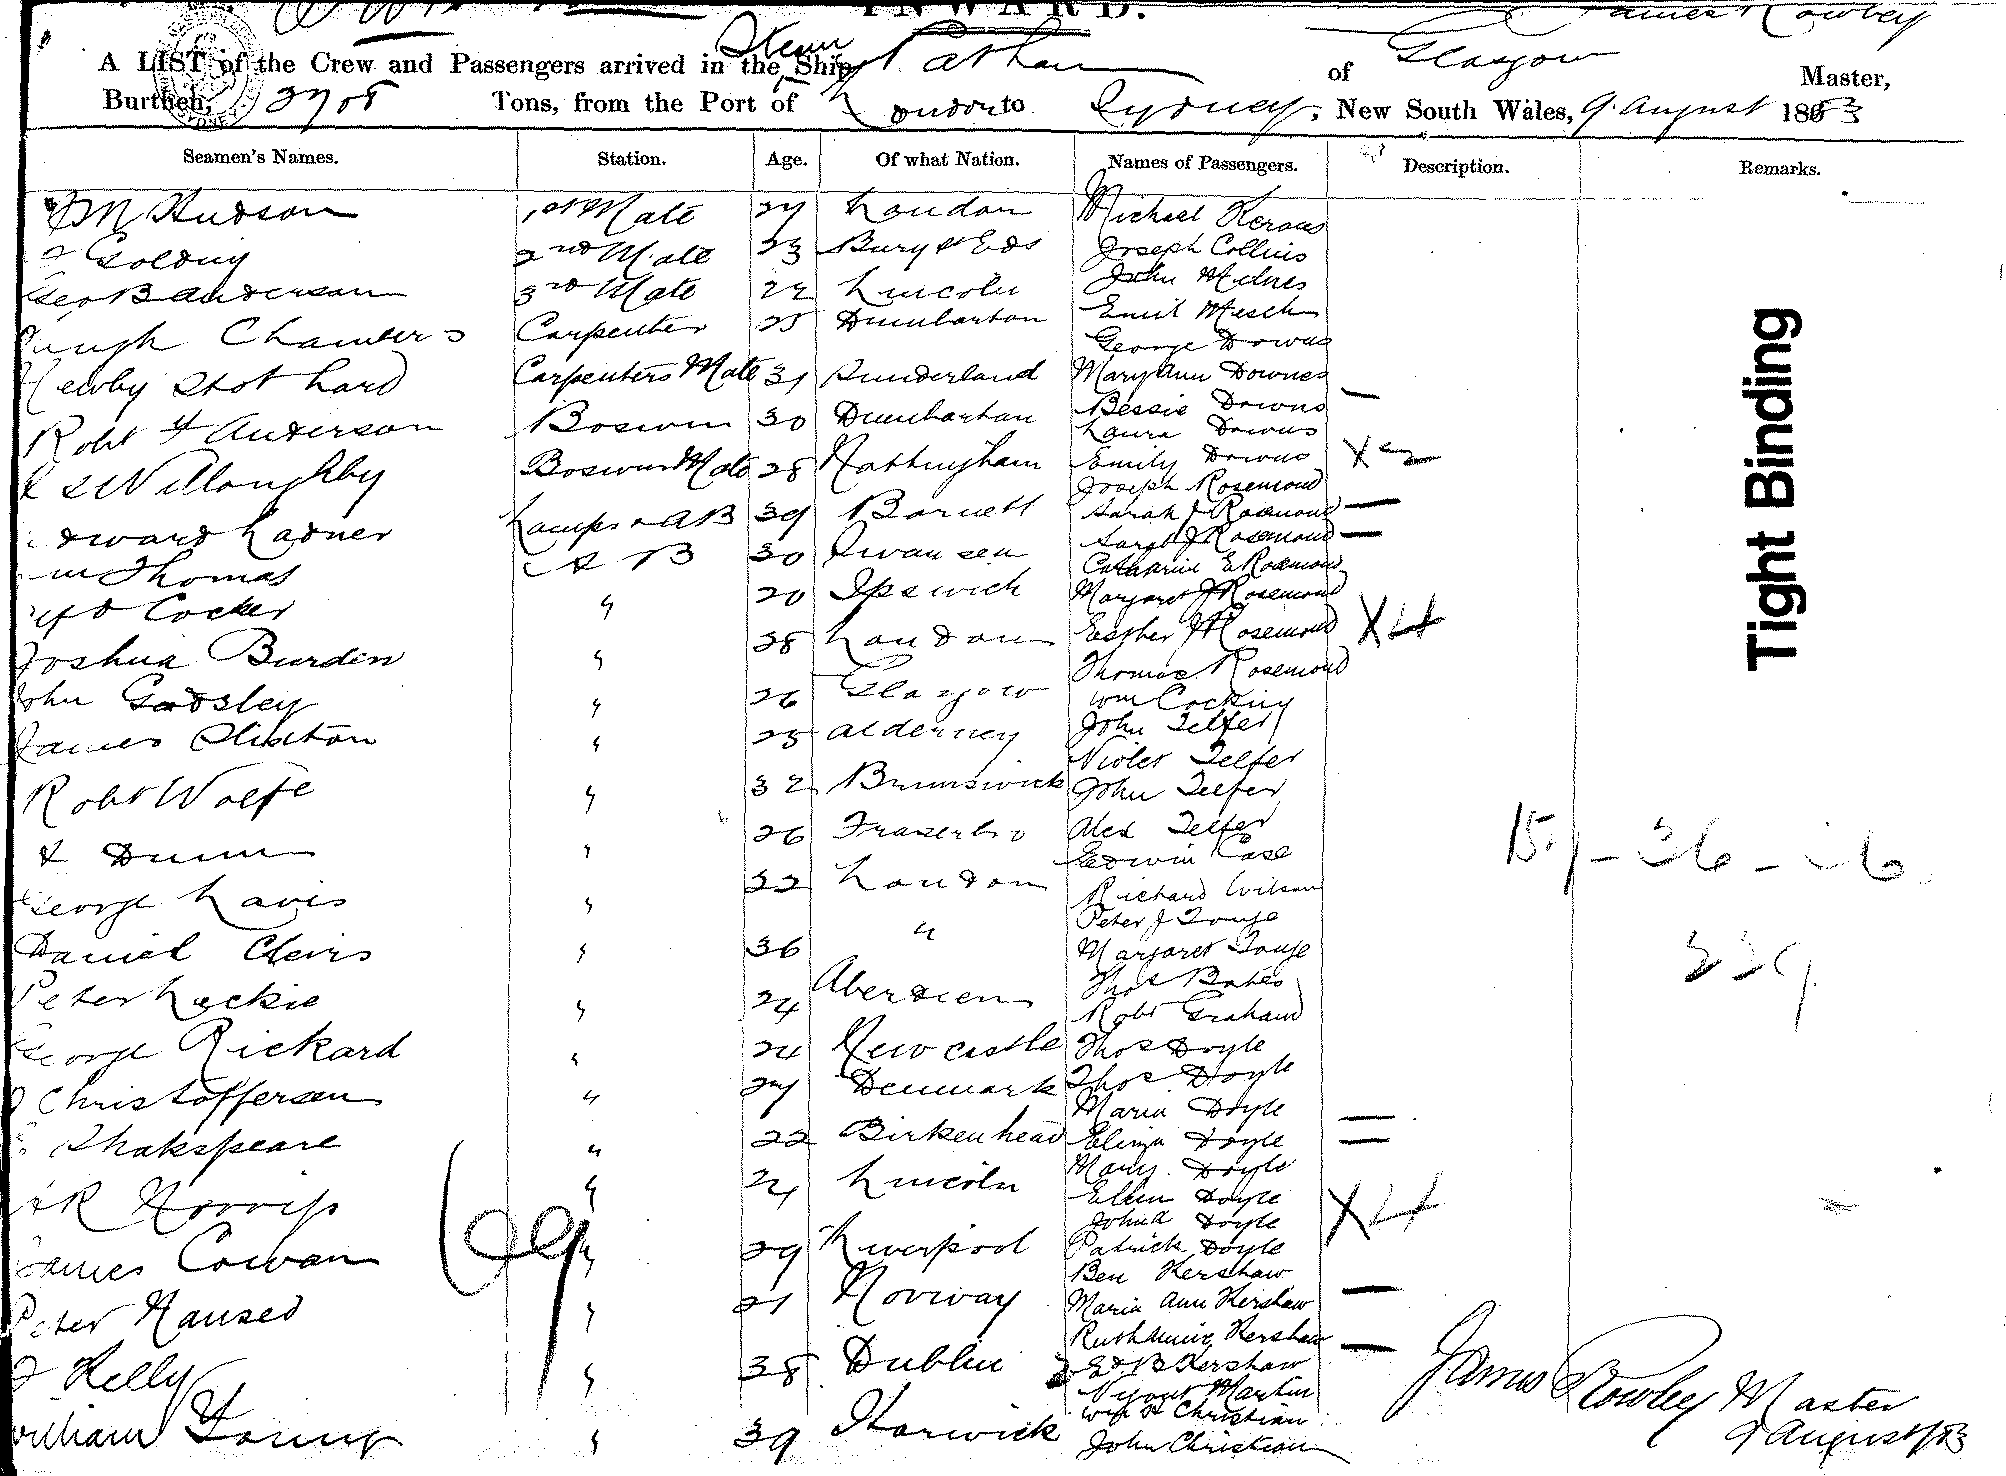 INWARD.
James Rowley
A LIST of the Crew and Passengers arrived in the Steam Ship Pathan of Glasgow Master,
Burthen, 2708 Tons, from the Port of London to Sydney, New South Wales, 9 August 1883
Seamen's Names. Station. Age. Of what Nation. Names of Passengers. Description. Remarks.
M Hudson 1st Mate 27 London Michael
Golding 2nd Mate 23 Bury St Eds Joseph Collins
Geo B Anderson 3rd Mate 22 Lincoln John Milnes
Hugh Chambers Carpenter 25 Dumbarton Emil
George Downs
Newby Stothard Carpenters Mate 31 Sunderland Mary Ann Downes
Robt Anderson Boswin 30 Dumbarton Bessie Downs
Laura Downs
Willoughby Boswins Mate 28 Nottingham Emily Downs
Joseph Rosemond
Edward Ladner Lamps & AB 39 Barnett Sarah J Rosemond
Sarah J Rosemond
Thomas A B 30 Swansea Catharine E Rosemond
Cocker " 20 Ipswich Margaret J Rosemond
Joshua Burden " 28 London Easther J Rosemond X 4
Thomas Rosemond
John Godsley " 26 Glasgow Wm Cocking
James Clinton " 25 Alderney John Telfer
Violet Telfer
Robt Wolfe " 32 Brunswick John Telfer
Dunn " 26 Fraserbro Alex Telfer
Edwin Case
George Lavis " 22 London Richard Wilson
Peter J Touge
Daniel " 36 " Margaret Touge
Thos Bates
Peter Leckie " 24 Aberdeen Robt Graham
George Rickard " 24 Newcastle Thos Doyle
Christoffersen " 27 Denmark Thos Doyle
Maria Doyle
Shakspeare " 22 Birkenhead Eliza Doyle
Mary Doyle
Norris " 24 Lincoln Ellen Doyle
Doyle X 4
James Cowan " 29 Liverpool Patrick Doyle
Ben Kershaw
Peter Hansed " 21 Norway Maria Ann Kershaw
Ruth Annie Kershaw
Kelly " 38 Dublin Ed B Kershaw
Martin
Christian
William Young " 39 Harwick John Christian
Tight Binding
James Rowley Master
9 August/83